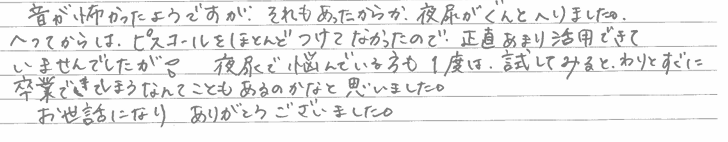 音が怖かったようですが、それもあったからか、夜尿がぐんとへりました。
へってからは、ピスコールをほとんどつけてなかったので、正直あまり活用できて
いませんでしたが。夜尿で悩んでいる方も1度は、試してみると、わりとすぐに
卒業できてしまうなんてこともあるのかなと思いました。
お世話になり ありがとうございました。